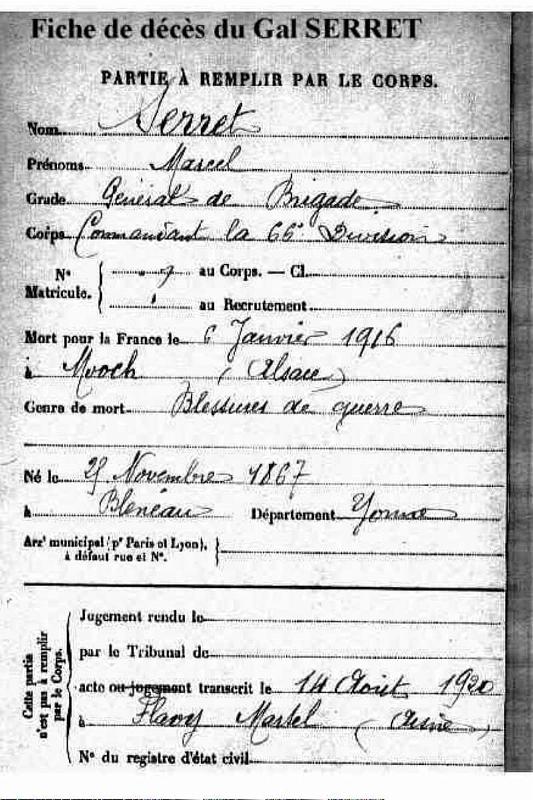 Fiche de décès du Gal SERRET
PARTIE À REMPLIR PAR LE CORPS.
Nom Serret
Prénoms Marcel
Grade Général de Brigade
Corps Commandant la 66e Division
N° Matricule. { au Corps. — Cl.
au Recrutement
Mort pour la France le 6 Janvier 1916
à Mooch (Alsace)
Genre de mort Blessures de guerre
Né le Novembre 1867
à Bleneau Département Yonne
Arrt municipal (pr Paris et Lyon),
à défaut rue et N°.
Cette partie n'est pas à remplir par le Corps.
Jugement rendu le
par le Tribunal de
acte ou jugement transcrit le 14 Août 1920
à Flavy Martel (Aisne)
N° du registre d'état civil